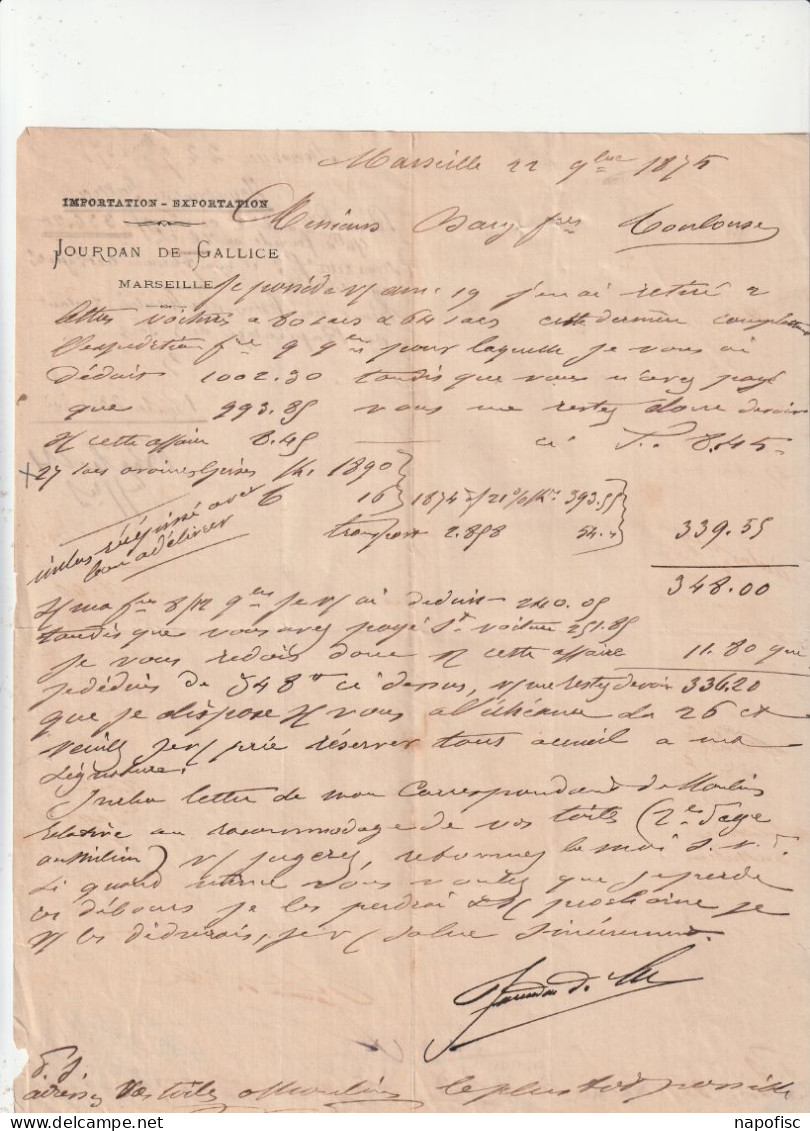 Marseille 22 9bre 1875
IMPORTATION - EXPORTATION
Messieurs Barg fres Toulouse
JOURDAN DE GALLICE
MARSEILLE
Je possède v/ 19 j'en ai retiré 2
lettres voitures a 80 sacs & 64 sacs cette dernière
l'expédition fre 9 pour laquelle je vous ai
déduit 1002.30 tandis que vous n'avez payé
que 993.85 vous me restez donc devoir
s/ cette affaire 8.45 ci F. 8.45
+ 27 sacs avoines grises k. 1890
6 16 1874 21 % k. 393.55
transport 2.858 54. 339.55
inclus récépissé avec
bon à délivrer
348.00
S/ ma fre 8/12 je v/ ai déduit 240.05
tandis que vous avez payé voiture 251.85
Je vous redois donc s/ cette affaire 11.80 que
je déduis de 348 ci dessus, v/ me restez devoir 336.20
que je dispose s/ vous a l'échéance du 26 ct
veuillez je v/ prie réserver tous accueil a ma
signature.
Inclus lettre de mon correspondant de Moulins
relative au raccommodage de vos toiles (2e page
au milieu) v/ jugerez, retournez la moi s. v. p.
Si quand même vous voulez que je perde
ces débours je les perdrai & prochaine je
v/ les déduirais, je v/ salue sincèrement.
Jourdan de
P. S.
adressez vos toiles a Moulins le plus tot possible
napofisc